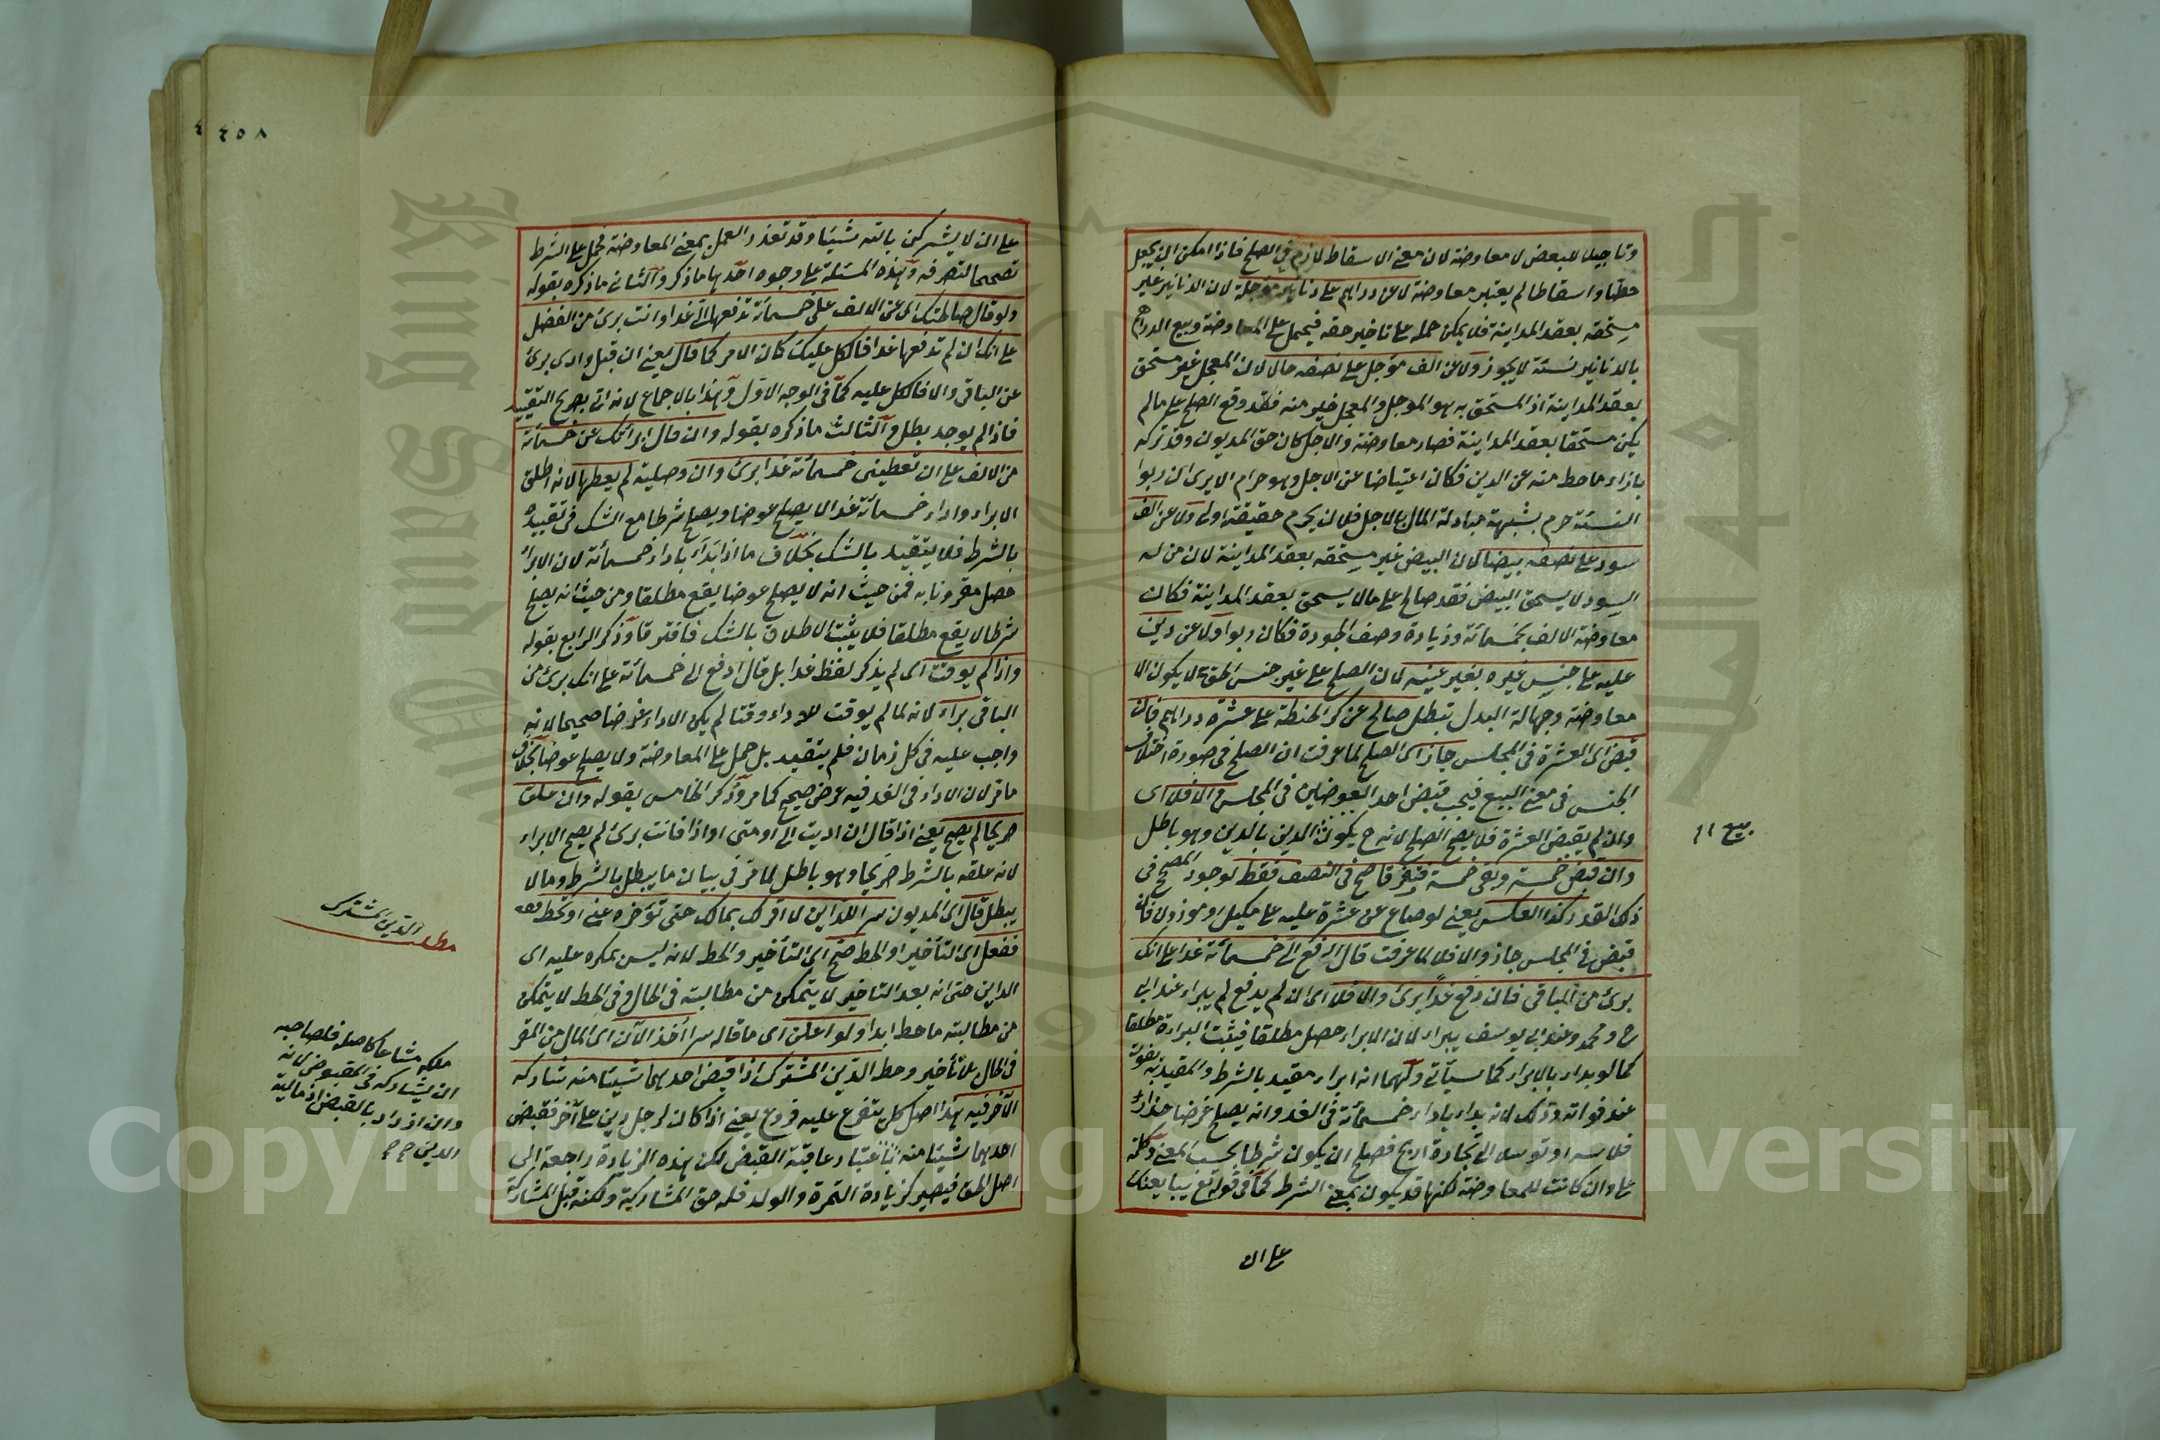 وتاجيلا للبعض لا معاوضة لان معنى الاسقاط لازم في الصلح فاذا امكن ان يجعل
حطا واسقاطا لم يعتبر معاوضة لا عن دراهم على دنانير مؤجلة لان الدنانير غير
مستحقه بعقد المداينة فلا يمكن حمله على تاخير حقه فيحمل على المعاوضة وبيع الدراهم
بالدنانير نسئة لا يجوز ولا عن الف مؤجل على نصفه حالا لان المعجل غير مستحق
بعقد المداينة اذ المستحق به هو المؤجل والمعجل خير منه فقد وقع الصلح على مالم
يكن مستحقا بعقد المداينة فصار معاوضة والاجل كان حق المديون وقد تركه
بازاء ما حط منه عن الدين فكان اعتياضا عن الاجل وهو حرام الا يرى ان ربوا
النسئة حرم بشبهة مبادلة المال بالاجل فلان يحرم حقيقة اولى ولا عن الف
سود على نصفه بيضا لان البيض غير مستحقه بعقد المداينة لان من له
السود لا يستحق البيض فقد صالح على مالا يستحق بعقد المداينة فكان
معاوضة الالف بخمسمائة وزيادة وصف الجودة فكان ربوا ولا عن دين
عليه على جنس غيره بغير عينه لان الصلح على غير جنس الحق لا يكون الا
معاوضة وجهالة البدل تبطل صالح عن كر الحنطة على عشرة دراهم فان
قبض اى العشرة في المجلس جاز اى الصلح لما عرفت ان الصلح في صورة اختلاف
الجنس في معنى البيع فيجب قبض احد العوضين في المجلس والا فلا اى
وان لم يقبض العشرة فلا يصح الصلح لانه ح يكون الدين بالدين وهو باطل
وان قبض خمسة وبقى خمسة فتفرقا صح في النصف فقط لوجود المصحح في
ذلك القدر كذا العكس يعنى لو صالح عن عشرة عليه على مكيل او موزون فان
قبض في المجلس جاز والا فلا لما عرفت قال ادفع الى خمسمائة غدا على انك
برئ من الباقى فان دفع غدا برئ والا فلا اى ان لم يدفع لم يبراء عند ابى
ح ومحمد وعند ابى يوسف يبراء لان الابراء حصل مطلقا فيثبت البراءة مطلقا
كما لو بداء بالابراء كما سيأتى ولهما انه ابراء مقيد بالشرط والمقيد به يفوت
عند فواته وذلك لانه بداء باداء خمسمائة في الغد وانه يصلح غرضا حذار
فلاسه او توسلا الى تجارة اربح فصلح ان يكون شرطا بحسب المعنى وكلمة
على وان كانت للمعاوضة لكنها قد يكون بمعنى الشرط كما في قوله تع يبايعنك
على ان
بيع ١١
٤٥٨
على ان لا يشركن بالله شيئا وقد تعذر العمل بمعنى المعاوضة فحمل على الشرط
تصحيحا لتصرفه وهذه المسئلة على وجوه احدها ما ذكر والثانى ما ذكره بقوله
ولو قال صالحتك اى عن الالف على خمسمائة تدفعها الى غدا وانت برئ من الفضل
على انك ان لم تدفعها غدا فالكل عليك كان الامر كما قال يعنى ان قبل وادى برئ
عن الباقى والا فالكل عليه كما في الوجه الاول وهذا بالاجماع لانه اتى بصريح التقييد
فاذا لم يوجد بطل والثالث ما ذكره بقوله وان قال ابراتك عن خمسمائة
من الالف على ان تعطينى خمسمائة غدا برئ وان وصلية لم يعطها لانه اطلق
الابراء واداء خمسمائة غدا لا يصلح عوضا ويصلح شرطا مع الشك في تقييده
بالشرط فلا يتقيد بالشك بخلاف ما اذا بداء باداء خمسمائة لان الابراء
حصل مقرونا به فمن حيث انه لا يصلح عوضا يقع مطلقا ومن حيث انه يصلح
شرطا لا يقع مطلقا فلا يثبت الاطلاق بالشك فافترقا وذكر الرابع بقوله
واذا لم يوقت اى لم يذكر لفظ غدا بل قال ادفع الى خمسمائة على انك برئ من
الباقى براء لانه لما لم يوقت للاداء وقتا لم يكن الاداء غرضا صحيحا لانه
واجب عليه في كل زمان فلم يتقيد بل حمل على المعاوضة ولا يصلح عوضا بخلاف
ما مر لان الاداء في الغد فيه غرض صحيح كما مر وذكر الخامس بقوله وان علق
صريحا لم يصح يعنى اذا قال ان اديت الى او متى او اذا فانت برئ لم يصح الابراء
لانه علقه بالشرط صريحا وهو باطل لما مر في بيان ما يبطل بالشرط ومالا
يبطل قال اى المديون سرا للداين لا اقر لك بمالك حتى تؤخره عنى او تحط
ففعل اى التأخير او الحط صح اى التأخير والحط لانه ليس بمكره عليه اى
الداين حتى انه بعد التاخير لا يتمكن من مطالبته في الحال وفي الحط لا يتمكن
من مطالبته ما حط ابدا ولو اعلن اى ما قاله سرا اخذ الآن اى المال من المقر
في الحال بلا تأخير وحط الدين المشترك اذا قبض احدهما شيئا منه شاركه
الآخر فيه هذا اصل كلى يتفرع عليه فروع يعنى اذا كان لرجلين دين على آخر فقبض
احدهما شيئا منه باعتبار عاقبة القبض لكن هذه الزيادة راجعة الى
اصل الحق فيصير كزيادة الثمرة والولد فله حق المشاركة ولكنه قبل المشاركة
مطلب الدين المشترك
ملكه مشاعا كاصله فلصاحبه
ان يشاركه في المقبوض لانه
وان ازداد بالقبض اذ مالية
الدين
Copyright © King Saud University